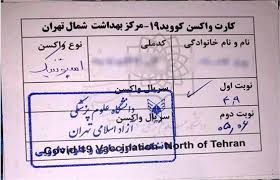 کارت واکسن کووید۱۹-مرکز بهداشت شمال تهران
نام و نام خانوادگی
کدملی
نوع واکسن
اسپوتنیک
نوبت اول
سریال واکسن
۴،۹
نوبت دوم
سریال واکسن
۰۵،۰۶
دانشگاه علوم پزشکی
آزاد اسلامی تهران
Covid-19 Vaccination North of Tehran